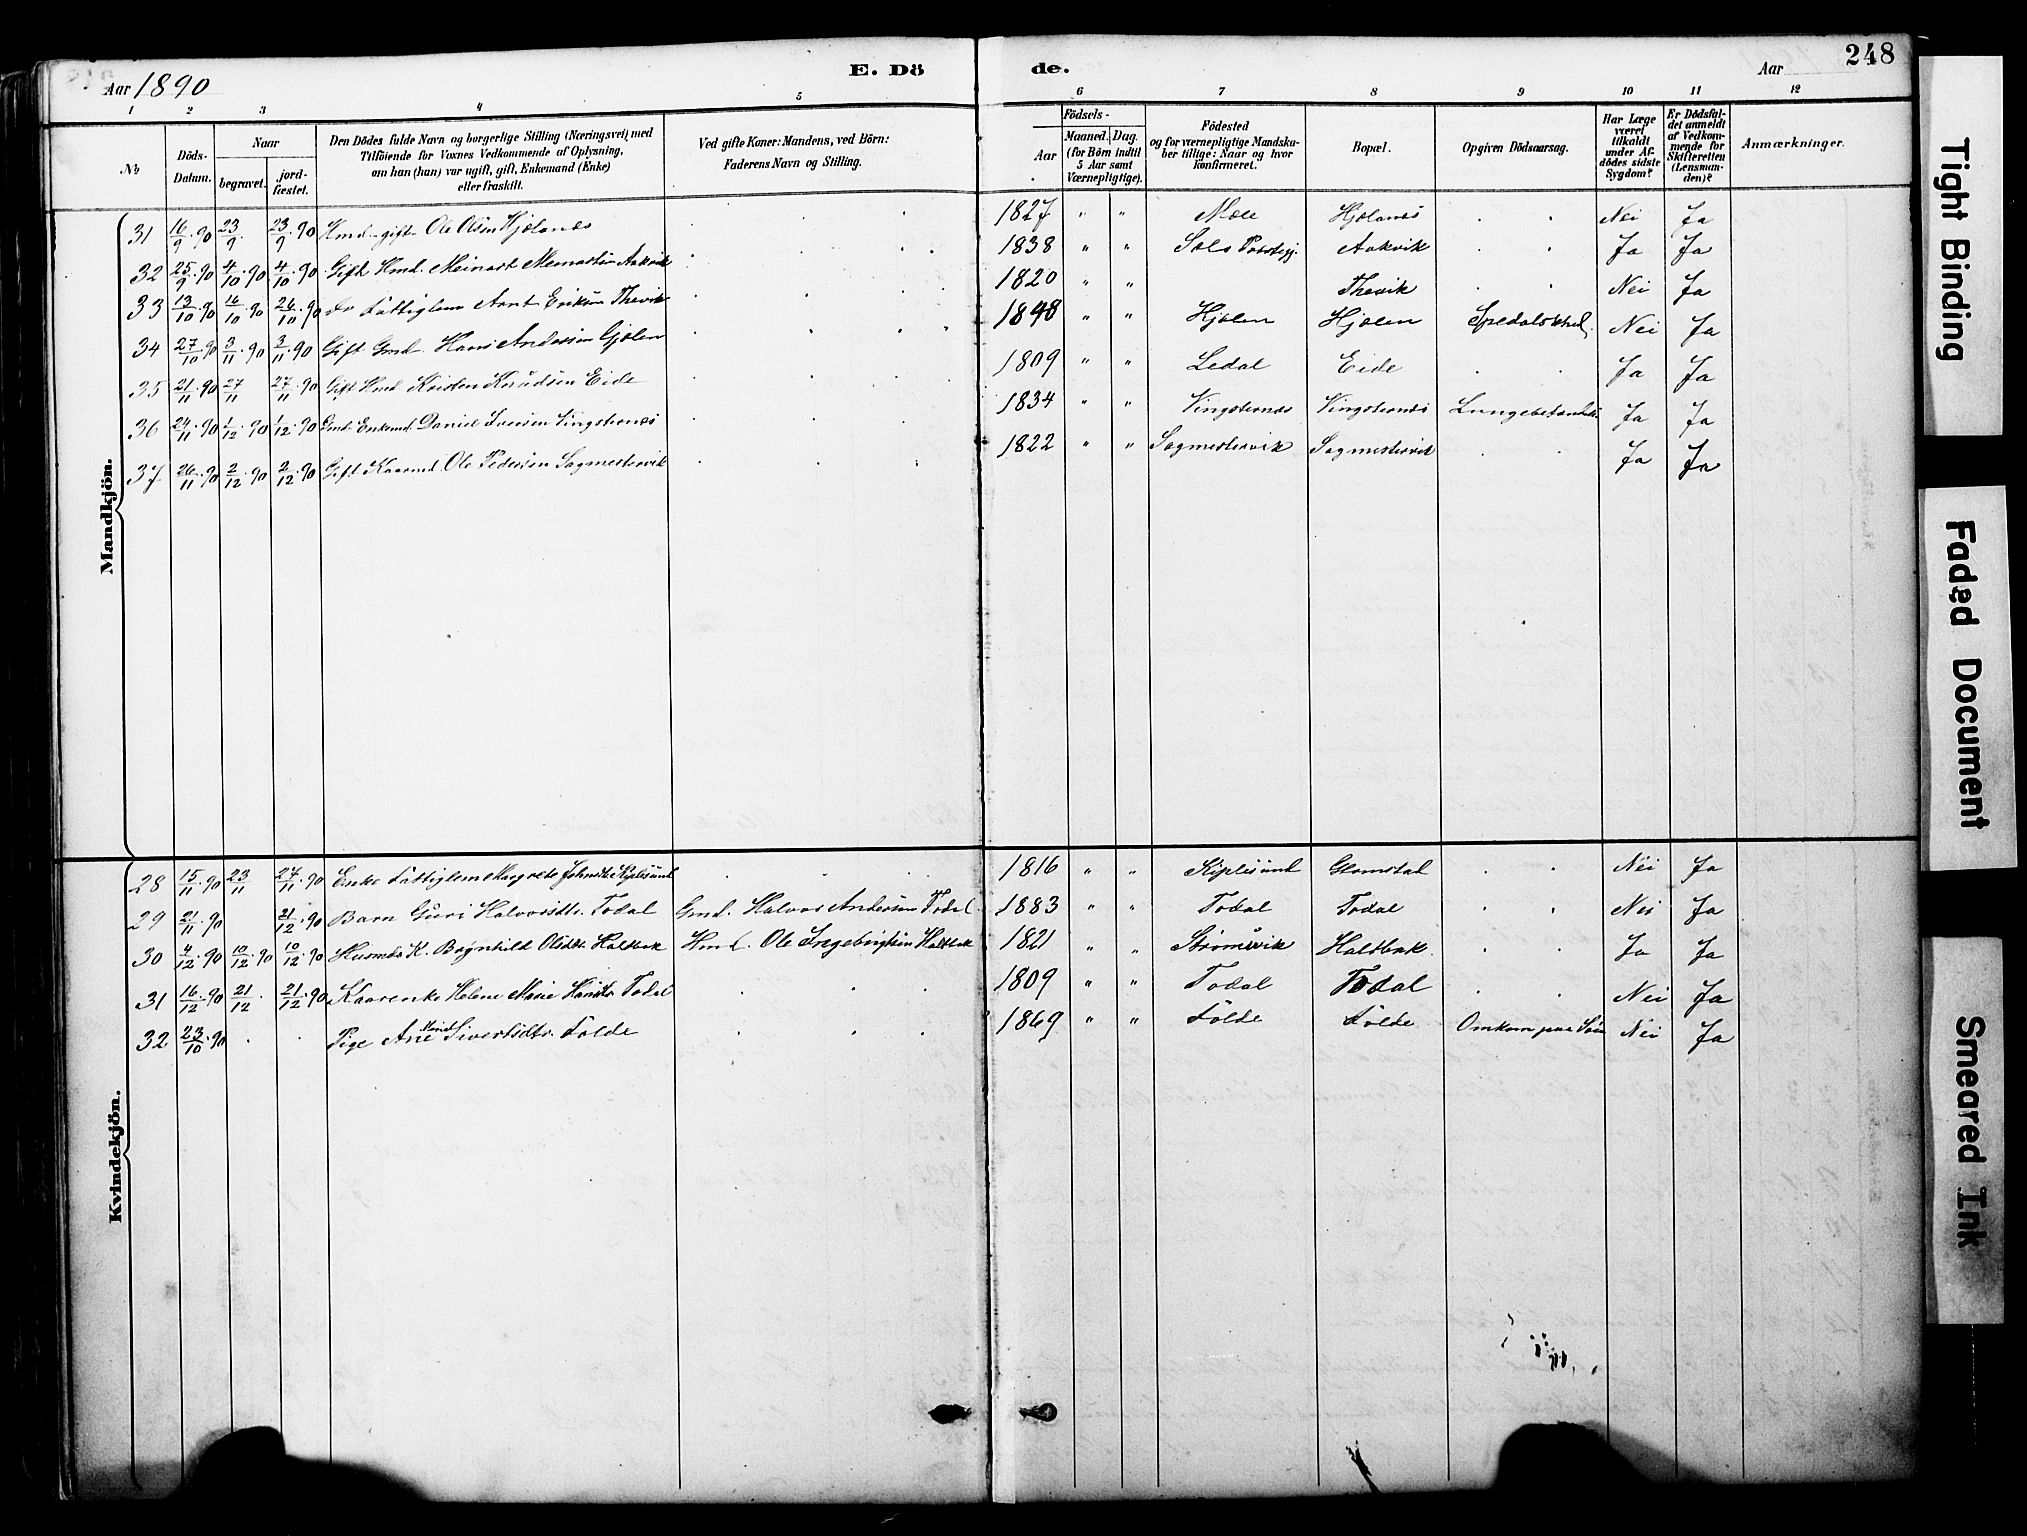 Aar 1890
E. Dö
de.
Aar
248
1 2 3 4 5 6 7 8 9 10 11 12
No
Döds-Datum.
Naar
begravet.
jord-fæstet.
Den Dödes fulde Navn og borgerlige Stilling (Næringsvei), med
Tilföiende for Voxnes Vedkommende af Oplysning,
om han (hun) var ugift, gift, Enkemand (Enke)
eller fraskilt.
Ved gifte Koner: Mandens, ved Börn:
Faderens Navn og Stilling.
Födsels-
Aar
Maaned. Dag.
(for Börn indtil
5 Aar samt
Værnepligtige).
Födested
og for værnepligtige Mandska-
ber tillige: Naar og hvor
konfirmeret.
Bopæl.
Opgiven Dödsaarsag.
Har Læge
været
tilkaldt
under Af-
dödes sidste
Sygdom?
Er Dödsfal-
det anmeldt
af Vedkom-
mende for
Skifteretten
(Lensman-
den)?
Anmærkninger.
Mandkjön.
31 16/9.90 23/9. 23/9.90 Hmd. gift Ole Olsen Hjælanes 1827 " " Moe Hjælanes Nei Ja
32 25/9.90 4/10.90 4/10.90 Gift Hmd. Meinart Aakvik 1838 " " Aakvik Ja Ja
33 13/10.90 16/10.90 26/10.90 Fattiglem Arnt Eriksen Thevik 1820 " " Thevik Nei Ja
34 27/10.90 3/11.90 3/11.90 Gift Gmd. Hans Andersen Gjølen 1848 " " Hjølen Hjølen Nei Ja
35 21/11.90 27/11 27/11.90 Gift Hmd. Kristen Knudsen Eide 1809 " " Ledal Eide Ja Ja
36 24/11.90 1/12.90 1/12.90 Gmd. Enkemd. Daniel Iversen Vingsternes 1834 " " Vingsternes Vingsternes Ja Ja
37 26/11.90 2/12.90 2/12.90 Gift Kaarmd. Ole Pedersen Sagmestervik 1822 " " Sagmestervik Sagmestervik Ja Ja
Kvindekjön.
28 15/11.90 23/11 27/11.90 Enke Fattiglem Margrete 1816 " " Glamstad Nei Ja
29 21/11.90 21/12.90 Barn Guri Halvorsdtr. Todal Gmd. Halvor Andersen Todal. 1883 " " Todal Todal Nei Ja
30 4/12.90 10/12.90 10/12.90 Husmds K. Brynhild Olsdtr. Haltbak Hmd. Ole Ingebrigtsen Haltbak 1821 " " Strømsvik Haltbak. Ja Ja
31 16/12.90 21/12. 21/12.90 Kaarenke Helene Marie Hansdtr Todal 1809 " " Todal Todal Nei Ja
32 23/10.90 Pige Ane Marie Sivertsdtr. Folde 1869 " " Folde Folde Omkom paa Søen Nei Ja
Tight Binding
Faded Document
Smeared Ink